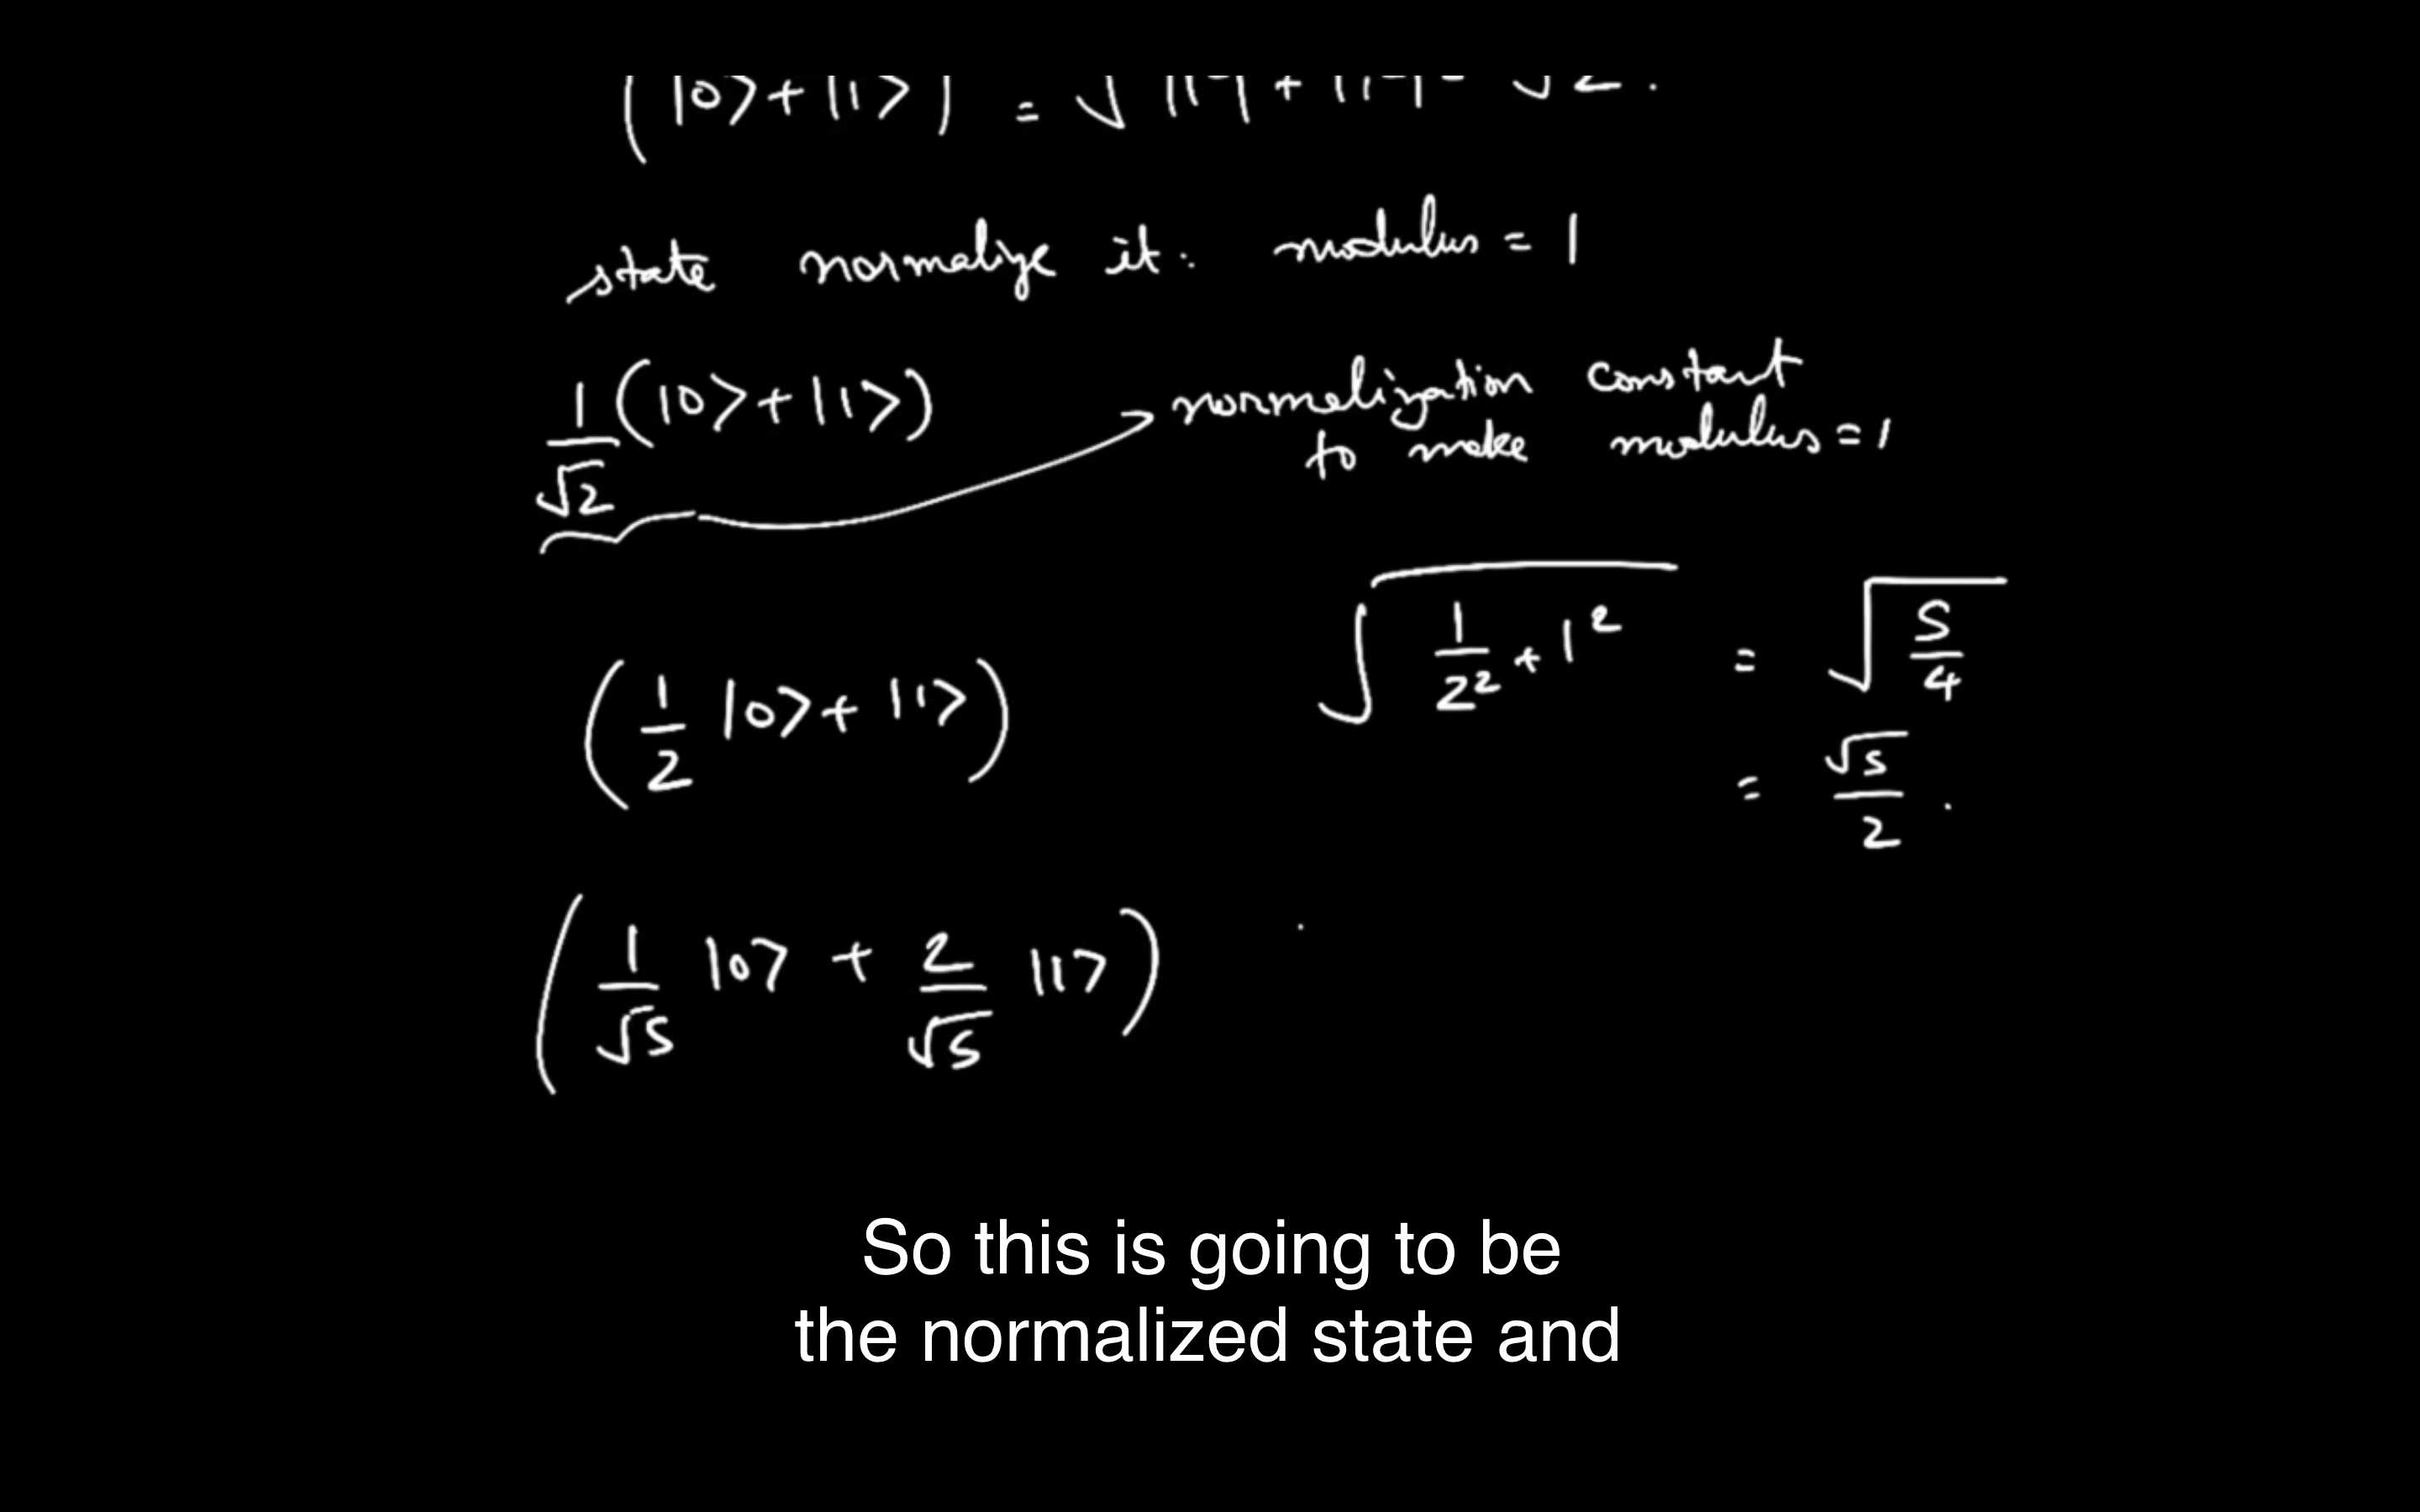 (|0>+|1>) = √
state normalize it. modulus = 1
1/√2 (|0>+|1>) normalization constant
to make modulus = 1
(1/2 |0>+|1>) √(1/2² + 1²) = √(5/4)
= √5/2 .
(1/√5 |0> + 2/√5 |1>)
So this is going to be
the normalized state and